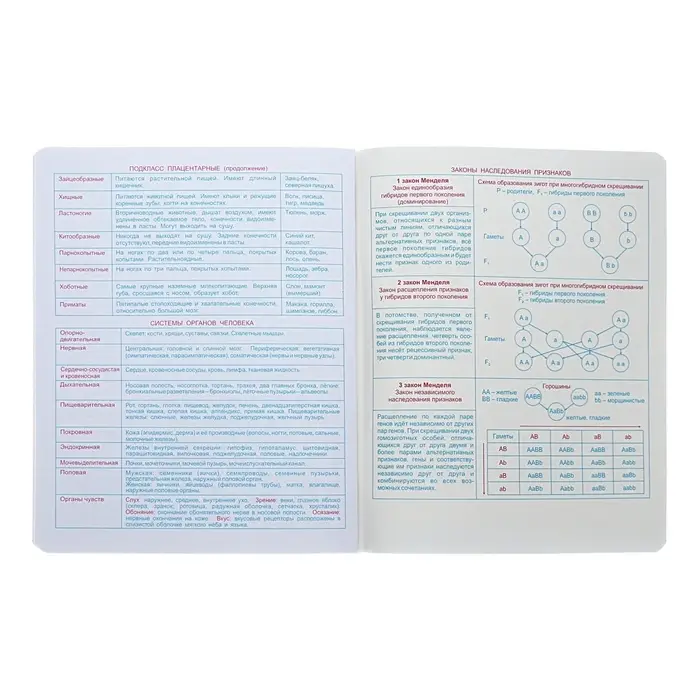 ПОДКЛАСС ПЛАЦЕНТАРНЫЕ (продолжение)
Зайцеобразные Питаются растительной пищей. Имеют длинный кишечник. Заяц-беляк, северная пищуха.
Хищные Питаются животной пищей. Имеют клыки и режущие коренные зубы, когти на конечностях. Волк, лисица, тигр, медведь.
Ластоногие Вторичноводные животные, дышат воздухом, имеют удлинённое обтекаемое тело, конечности видоизменены в ласты. Могут выходить на сушу. Тюлень, морж.
Китообразные Никогда не выходят на сушу. Задние конечности отсутствуют, передние видоизменены в ласты. Синий кит, кашалот.
Парнокопытные На ногах по два или по четыре пальца, покрытых копытами. Растительноядные. Корова, баран, лось, олень.
Непарнокопытные На ногах по три пальца, покрытых копытами. Лошадь, зебра, носорог.
Хоботные Самые крупные наземные млекопитающие. Верхняя губа, сросшаяся с носом, образует хобот. Слон, мамонт (вымерший).
Приматы Пятипалые стопоходящие и хватательные конечности, относительно большой мозг. Макака, горилла, шимпанзе, гиббон.
СИСТЕМЫ ОРГАНОВ ЧЕЛОВЕКА
Опорно-двигательная Скелет: кости, хрящи, суставы, связки. Скелетные мышцы.
Нервная Центральная: головной и спинной мозг. Периферическая: вегетативная (симпатическая, парасимпатическая), соматическая (нервы и нервные узлы).
Сердечно-сосудистая и кровеносная Сердце, кровеносные сосуды, кровь, лимфа, тканевая жидкость.
Дыхательная Носовая полость, носоглотка, гортань, трахея, два главных бронха, лёгкие
Пищеварительная Рот, гортань, глотка, пищевод, желудок, печень, двенадцатиперстная кишка, тонкая кишка, слепая кишка, аппендикс, прямая кишка. Пищеварительные железы: слюнные, железы желудка, поджелудочная, желчный пузырь.
Покровная Кожа (эпидермис, дерма) и её производные (волосы, ногти, потовые, сальные, молочные железы).
Эндокринная Железы внутренней секреции: гипофиз, гипоталамус, щитовидная, паращитовидная, вилочковая, поджелудочная, половые, надпочечники.
Мочевыделительная Почки, мочеточники, мочевой пузырь, мочеиспускательный канал.
Половая Мужская: семенники (яички), семяпроводы, семенные пузырьки, предстательная железа, наружный половой орган.
Женская: яичники, яйцеводы (фаллопиевы трубы), матка, влагалище, наружные половые органы.
Органы чувств Слух: наружное, среднее, внутреннее ухо. Зрение: веки, глазное яблоко (склера, зрачок, роговица, радужная оболочка, сетчатка, хрусталик). Обоняние: окончание обонятельного нерва в носовой полости. Осязание: нервные окончания на коже. Вкус: вкусовые рецепторы расположены в слизистой оболочке мягкого нёба и языка.
ЗАКОНЫ НАСЛЕДОВАНИЯ ПРИЗНАКОВ
1 закон Менделя
Закон единообразия
гибридов первого поколения
(доминирование)
При скрещивании двух организмов, относящихся к разным чистым линиям, отличающихся друг от друга по одной паре альтернативных признаков, всё первое поколение гибридов окажется единообразным и будет нести признак одного из родителей.
Схема образования зигот при многогибридном скрещивании
P – родители, F₁ – гибриды первого поколения
P A A a a B B b b
Гаметы A a B b
F₁ A a B b
2 закон Менделя
Закон расщепления признаков
у гибридов второго поколения
В потомстве, полученном от скрещивания гибридов первого поколения, наблюдается явление расщепления: четверть особей из гибридов второго поколения несёт рецессивный признак, три четверти доминантный.
Схема образования зигот при моногибридном скрещивании
F₁ – гибриды первого поколения
F₂ – гибриды второго поколения
F₁ A a A a
Гаметы A a A a
F₂ A A A a A a a a
3 закон Менделя
Закон независимого
наследования признаков
Расщепление по каждой паре генов идёт независимо от других пар генов. При скрещивании двух гомозиготных особей, отличающихся друг от друга двумя и более парами альтернативных признаков, гены и соответствующие им признаки наследуются независимо друг от друга и комбинируются во всех возможных сочетаниях.
Горошины
AA – желтые
BB – гладкие
AABB aabb
AaBb
aa – зеленые
bb – морщинистые
желтые, гладкие
Гаметы AB Ab aB ab
AB AABB AABb AaBB AaBb
Ab AABb AAbb AaBb Aabb
aB AaBB AaBb aaBB aaBb
ab AaBb Aabb aaBb aabb